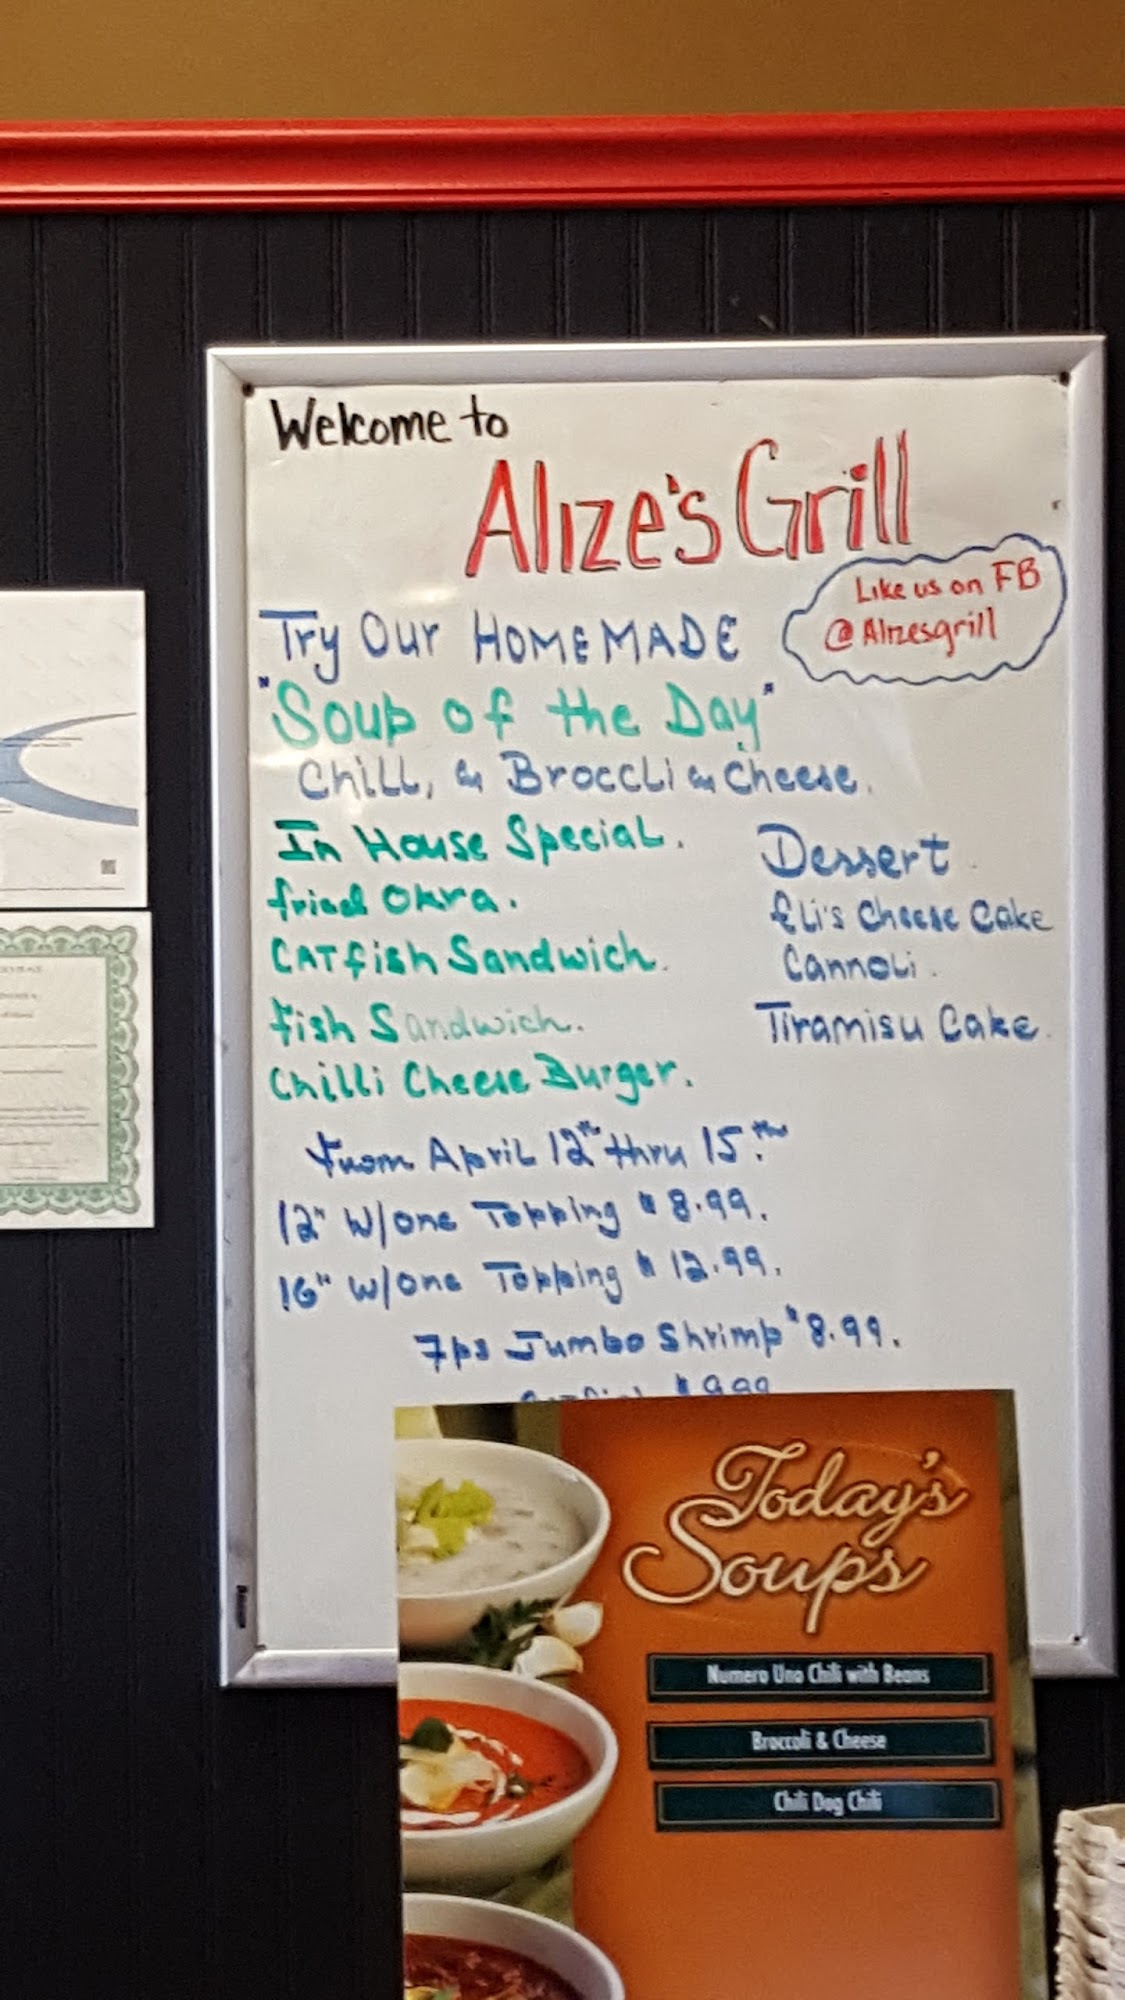 Welcome to
Alize's Grill
Like us on FB
@Alizesgrill
Try Our HOMEMADE
"Soup of the Day"
Chill, & Broccli & Cheese.
In House Special.
fried Okra.
CATfish Sandwich.
fish Sandwich.
Chilli Cheese Burger.
Dessert
Eli's Cheese Cake
Cannoli.
Tiramisu Cake.
from April 12th thru 15th.
12" W/one Topping $8.99.
16" W/one Topping $12.99.
7ps Jumbo Shrimp $8.99.
$9.99
Today's
Soups
Numero Uno Chili with Beans
Broccoli & Cheese
Chili Dog Chili